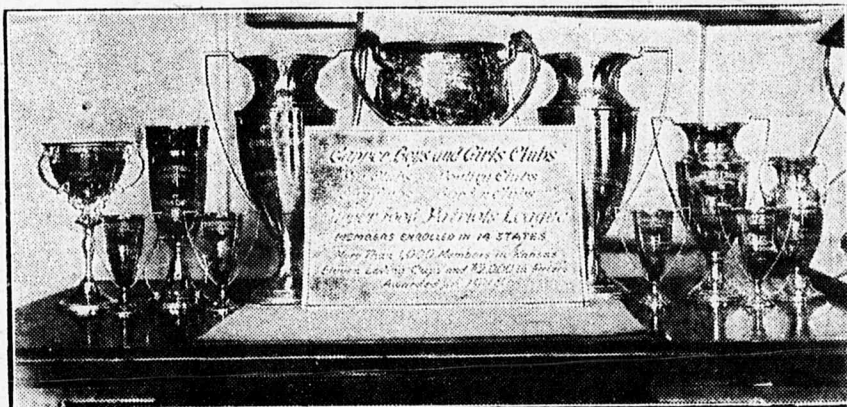 Capper Boys and Girls Clubs
Clubs Clubs
Clubs Clubs
Capper Food Patriots League
MEMBERS ENROLLED IN 14 STATES
More Than 1,000 Members in Kansas
Eleven Loving Cups and $2,000 in Prizes
Awarded in 1918